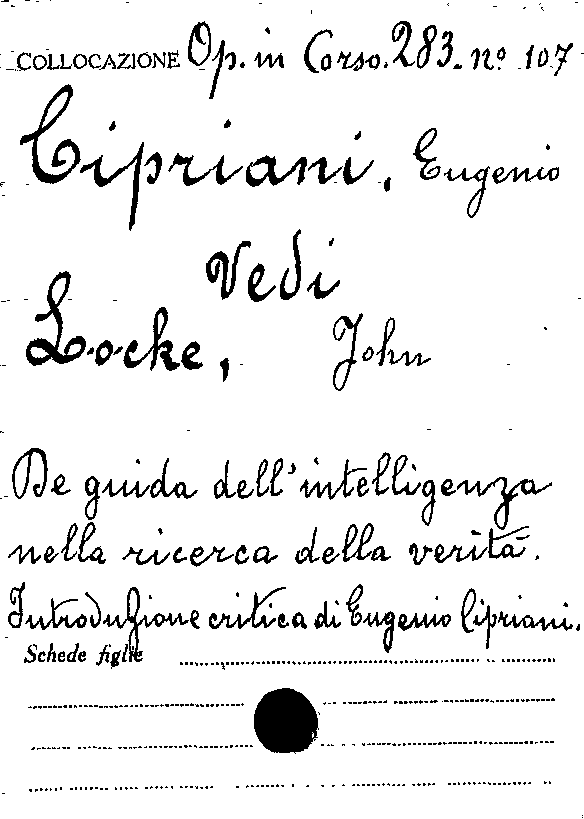 COLLOCAZIONE Op. in Corso. 283. nº 107
Cipriani, Eugenio
Vedi
Locke, John
De guida dell'intelligenza
nella ricerca della verità.
Introduzione critica di Eugenio Cipriani.
Schede figlie